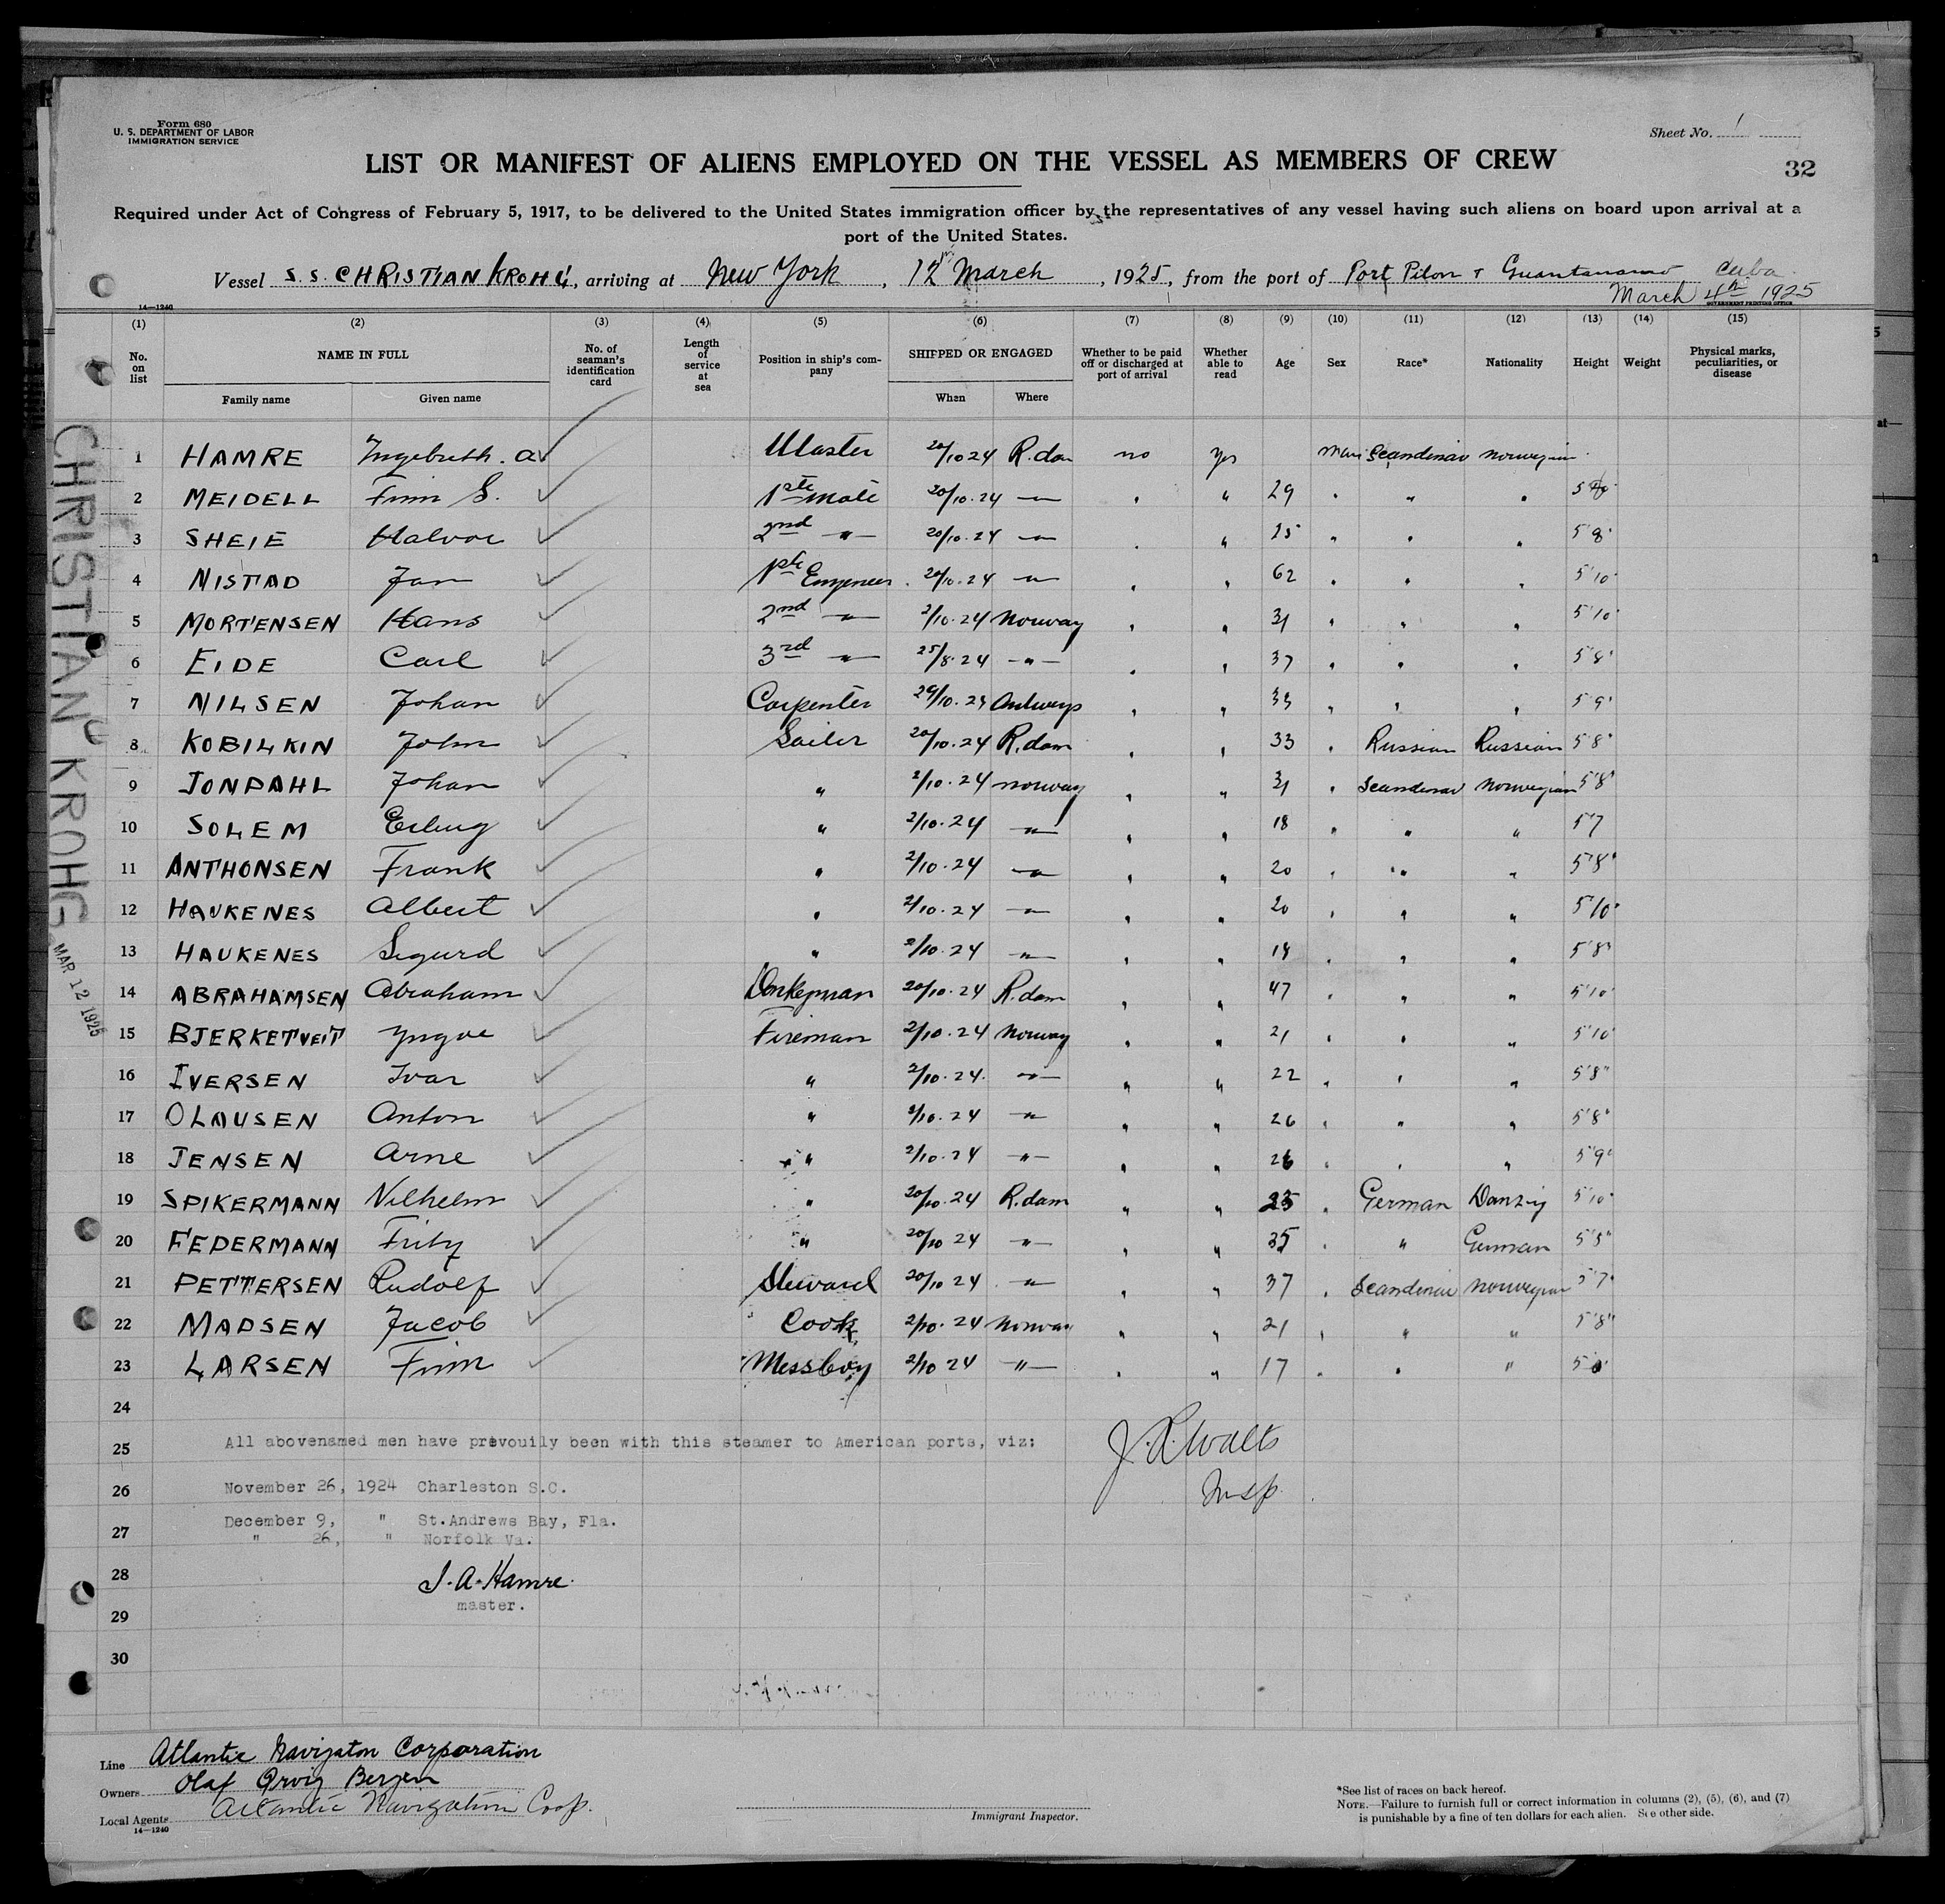 Form 680
U. S. DEPARTMENT OF LABOR
IMMIGRATION SERVICE
Sheet No. 1
32
LIST OR MANIFEST OF ALIENS EMPLOYED ON THE VESSEL AS MEMBERS OF CREW
Required under Act of Congress of February 5, 1917, to be delivered to the United States immigration officer by the representatives of any vessel having such aliens on board upon arrival at a
port of the United States.
Vessel S.S. CHRISTIAN KROHG, arriving at New York, 12th March, 1925, from the port of Port Pilon & Guantanamo Cuba
March 4th 1925
14—1240
GOVERNMENT PRINTING OFFICE
(1) (2) (3) (4) (5) (6) (7) (8) (9) (10) (11) (12) (13) (14) (15)
No. on list NAME IN FULL Family name Given name No. of seaman's identification card Length of service at sea Position in ship's company SHIPPED OR ENGAGED When Where Whether to be paid off or discharged at port of arrival Whether able to read Age Sex Race* Nationality Height Weight Physical marks, peculiarities, or disease
1 HAMRE Ingebreth. A Master 20/10 24 R.dam no yes Man Scandinav Norwegian
2 MEIDELL Finn S. 1ste mate 20/10.24 — " — " " 29 " " "
3 SHEIE Halvor 2nd — " — 20/10.24 — " — " " " " " 5'8"
4 NISTAD Jan 1ste Engeneer 20/10.24 — " — " " 62 " " " 5'10"
5 MORTENSEN Hans 2nd — " — 2/10.24 Norway " " 31 " " " 5'10"
6 EIDE Carl 3rd — " — 25/8.24 — " — " " 37 " " " 5'8"
7 NILSEN Johan Carpenter 29/10.24 Antwerp " " 33 " " " 5'9"
8 KOBILKIN John Sailer 20/10.24 R.dam " " 33 " Russian Russian 5'8"
9 JONDAHL Johan " 2/10.24 Norway " " 31 " Scandinav Norwegian 5'8"
10 SOLEM Erling " 2/10.24 — " — " " 18 " " " 5'7
11 ANTHONSEN Frank " 2/10.24 — " — " " 20 " " " 5'8"
12 HAUKENES Albert " 2/10.24 — " — " " 20 " " " 5'10"
13 HAUKENES Sigurd " 2/10.24 — " — " " " " " 5'8"
14 ABRAHAMSEN Abraham Donkeyman 20/10.24 R.dam " " 47 " " " 5'10"
15 BJERKETVEIT Yngve Fireman 2/10.24 Norway " " 21 " " " 5'10"
16 IVERSEN Ivar " 2/10.24. — " — " " 22 " " " 5'8"
17 OLAUSEN Anton " 2/10.24 — " — " " 26 " " " 5'8"
18 JENSEN Arne " 2/10.24 — " — " " 26 " " " 5'9"
19 SPIKERMANN Vilhelm " 20/10.24 R.dam " " " German Danzig 5'10"
20 FEDERMANN Fritz " 20/10 24 — " — " " 35 " " German 5'5"
21 PETTERSEN Rudolf Steward 20/10 24 — " — " " 37 " Scandinav Norwegian 5'7"
22 MADSEN Jacob Cook 2/10.24 Norway " " 21 " " " 5'8"
23 LARSEN Finn Messboy 2/10 24 — " — " " 17 " " "
24
25 All abovenamed men have prevouily been with this steamer to American ports, viz:
J. R. Walts
26 November 26, 1924 Charleston S.C.
Insp.
December 9, " St.Andrews Bay, Fla.
27 " 26, " Norfolk Va.
28 I. A. Hamre.
master.
29
30
CHRISTIAN KROHG
MAR 12 1925
Line Atlantic Navigaton Corporation
Owners Olaf Orvig Bergen
Local Agents Atlantic Navigation Corp.
14—1240
Immigrant Inspector.
*See list of races on back hereof.
NOTE.—Failure to furnish full or correct information in columns (2), (5), (6), and (7)
is punishable by a fine of ten dollars for each alien. See other side.